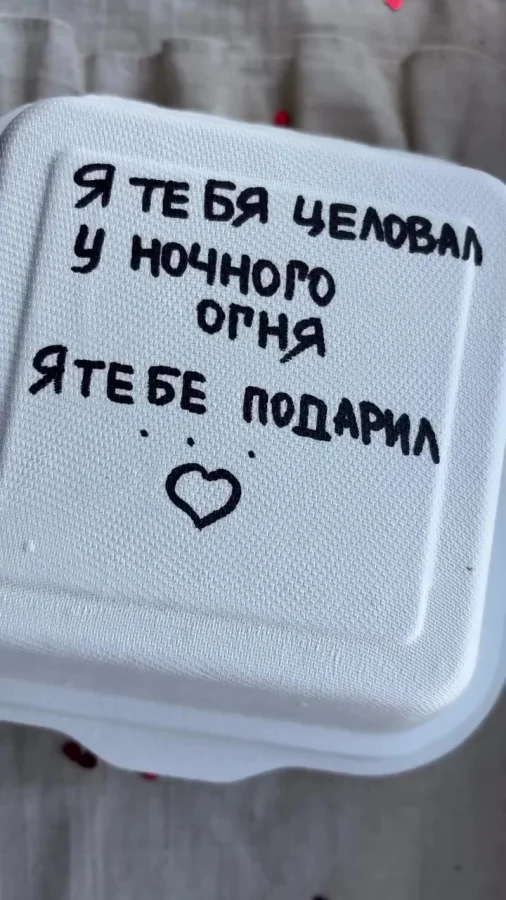 Я ТЕБЯ ЦЕЛОВАЛ
У НОЧНОГО
ОГНЯ
Я ТЕБЕ ПОДАРИЛ
...